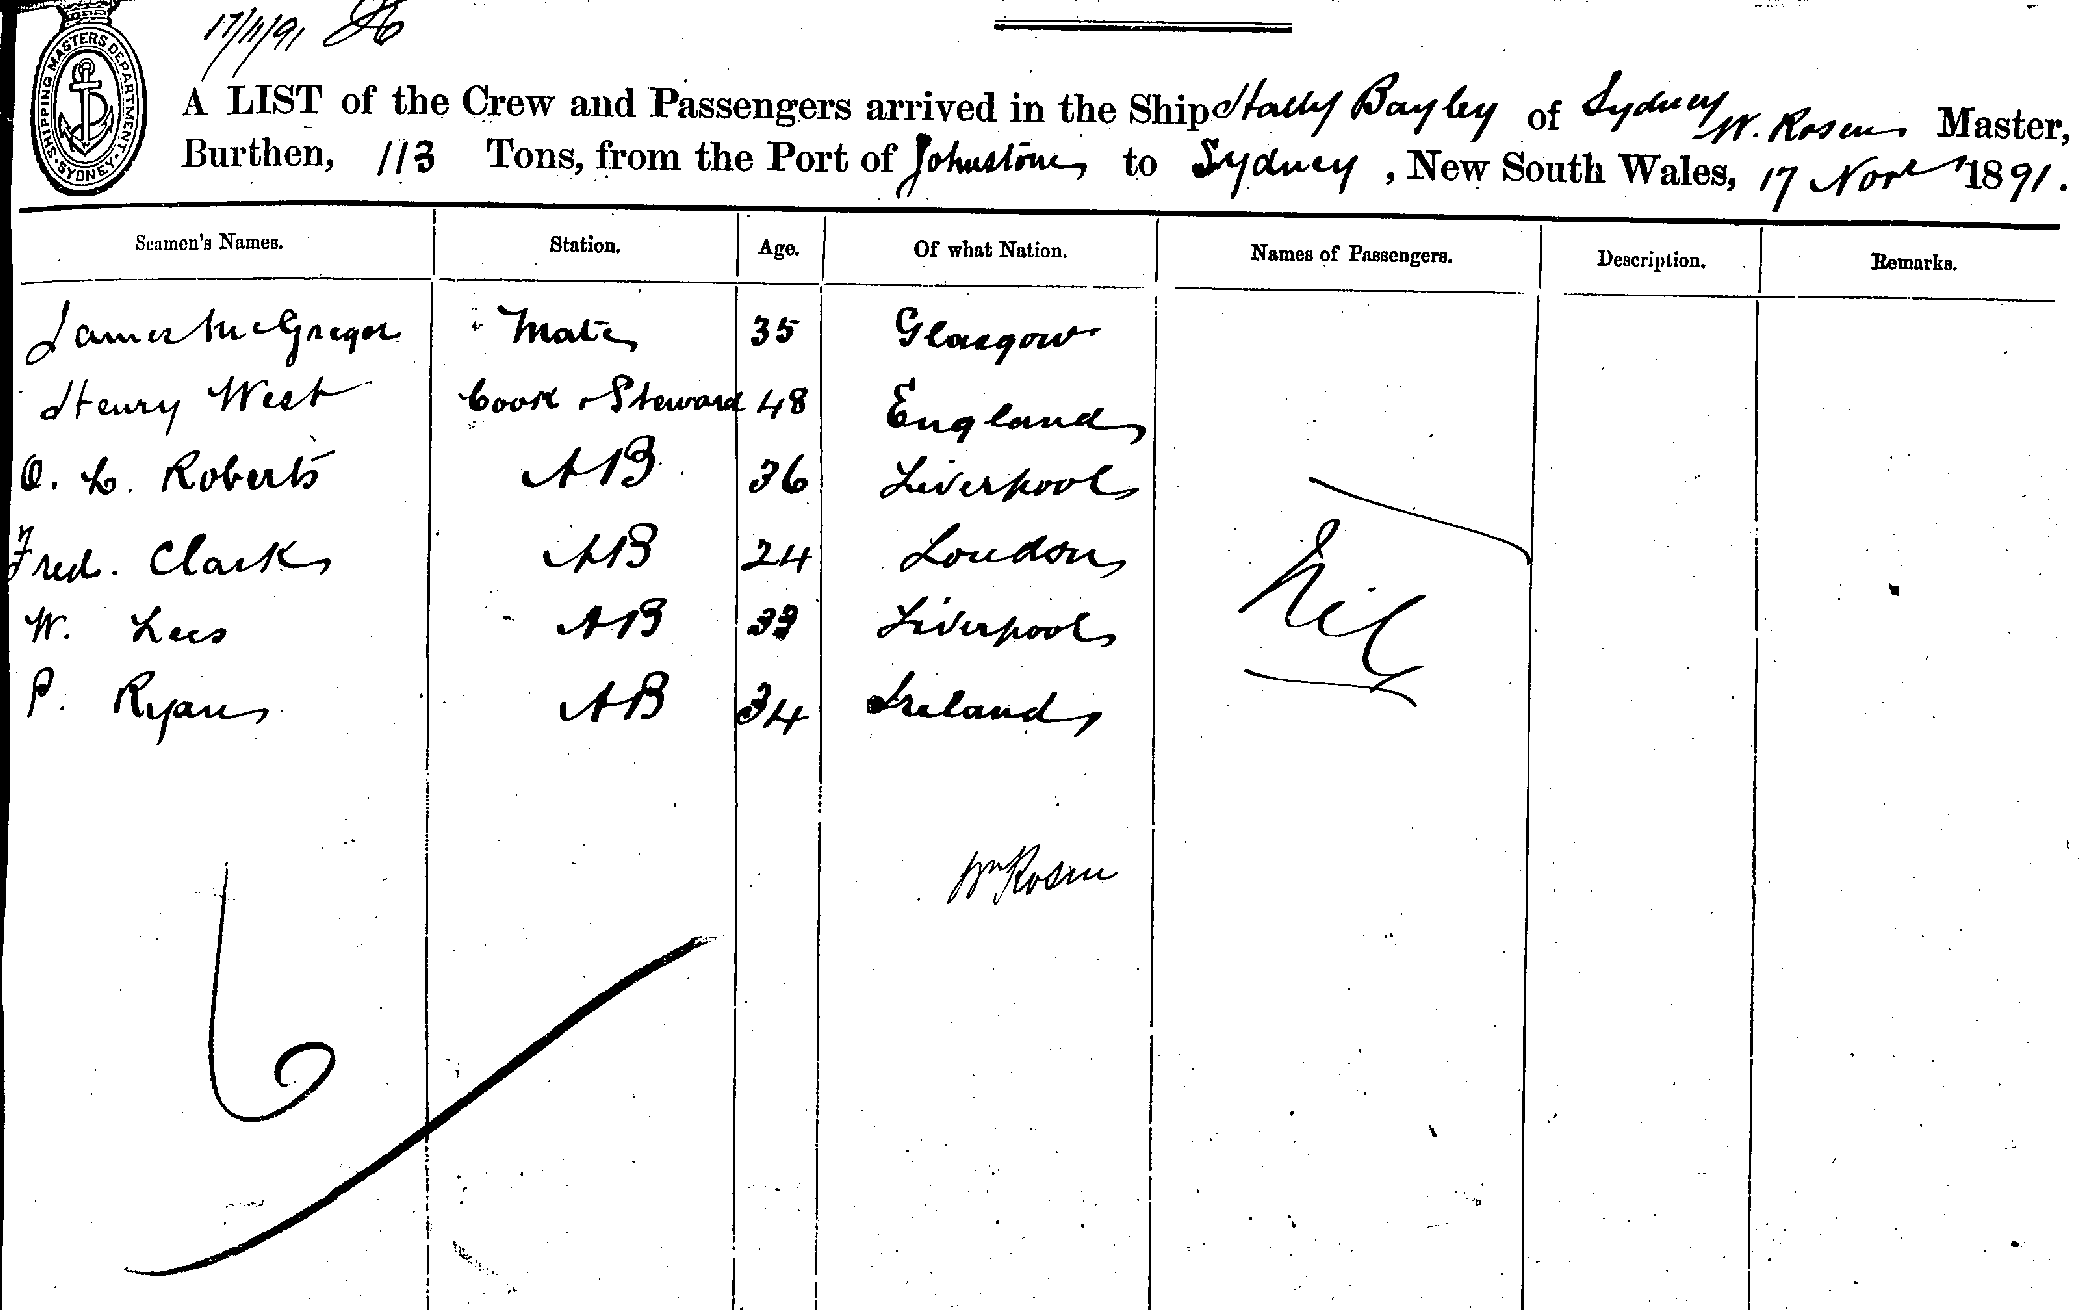 17/11/91
SHIPPING MASTERS DEPARTMENT. SYDNEY.
A LIST of the Crew and Passengers arrived in the Ship Hally Bayley of Sydney W. Rosen Master,
Burthen, 113 Tons, from the Port of Johnstone to Sydney, New South Wales, 17 Novr 1891.
Seamen's Names. Station. Age. Of what Nation. Names of Passengers. Description. Remarks.
James McGregor Mate 35 Glasgow
Henry West Cook & Steward 48 England
O. L. Roberts AB 36 Liverpool
Fred. Clark AB 24 London
Nil
W. Lees AB 33 Liverpool
P. Ryan AB 34 Ireland
Wm Rosen
6